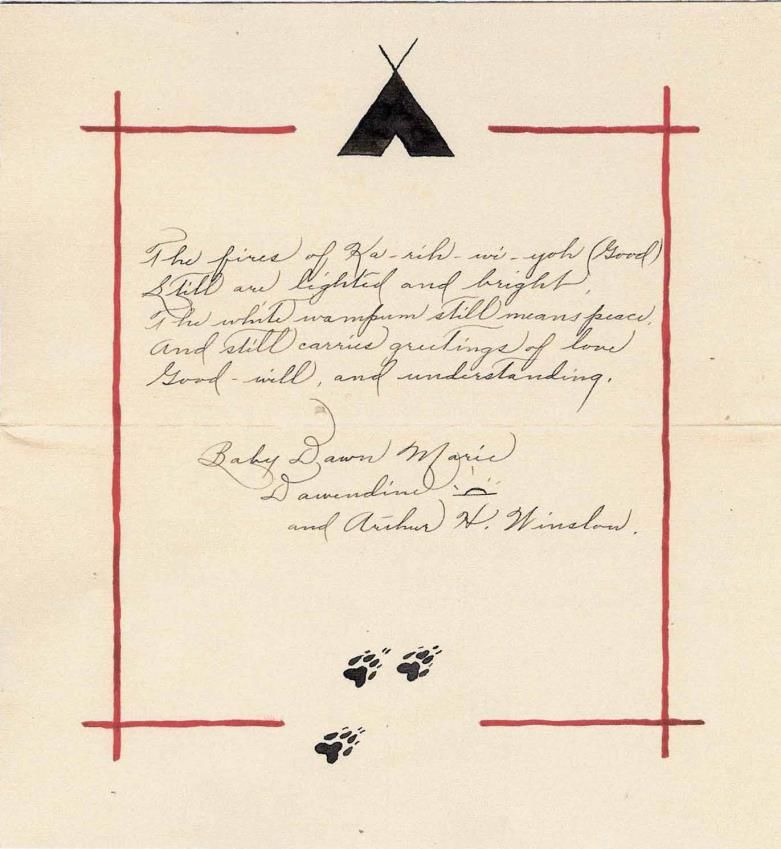 The fires of Ka-rih-wi-yoh (Good)
Still are lighted and bright,
The white wampum still means peace,
And still carries greetings of love
Good-will, and understanding.
Baby Dawn Marie
Dawendine
and Arthur H. Winslow.